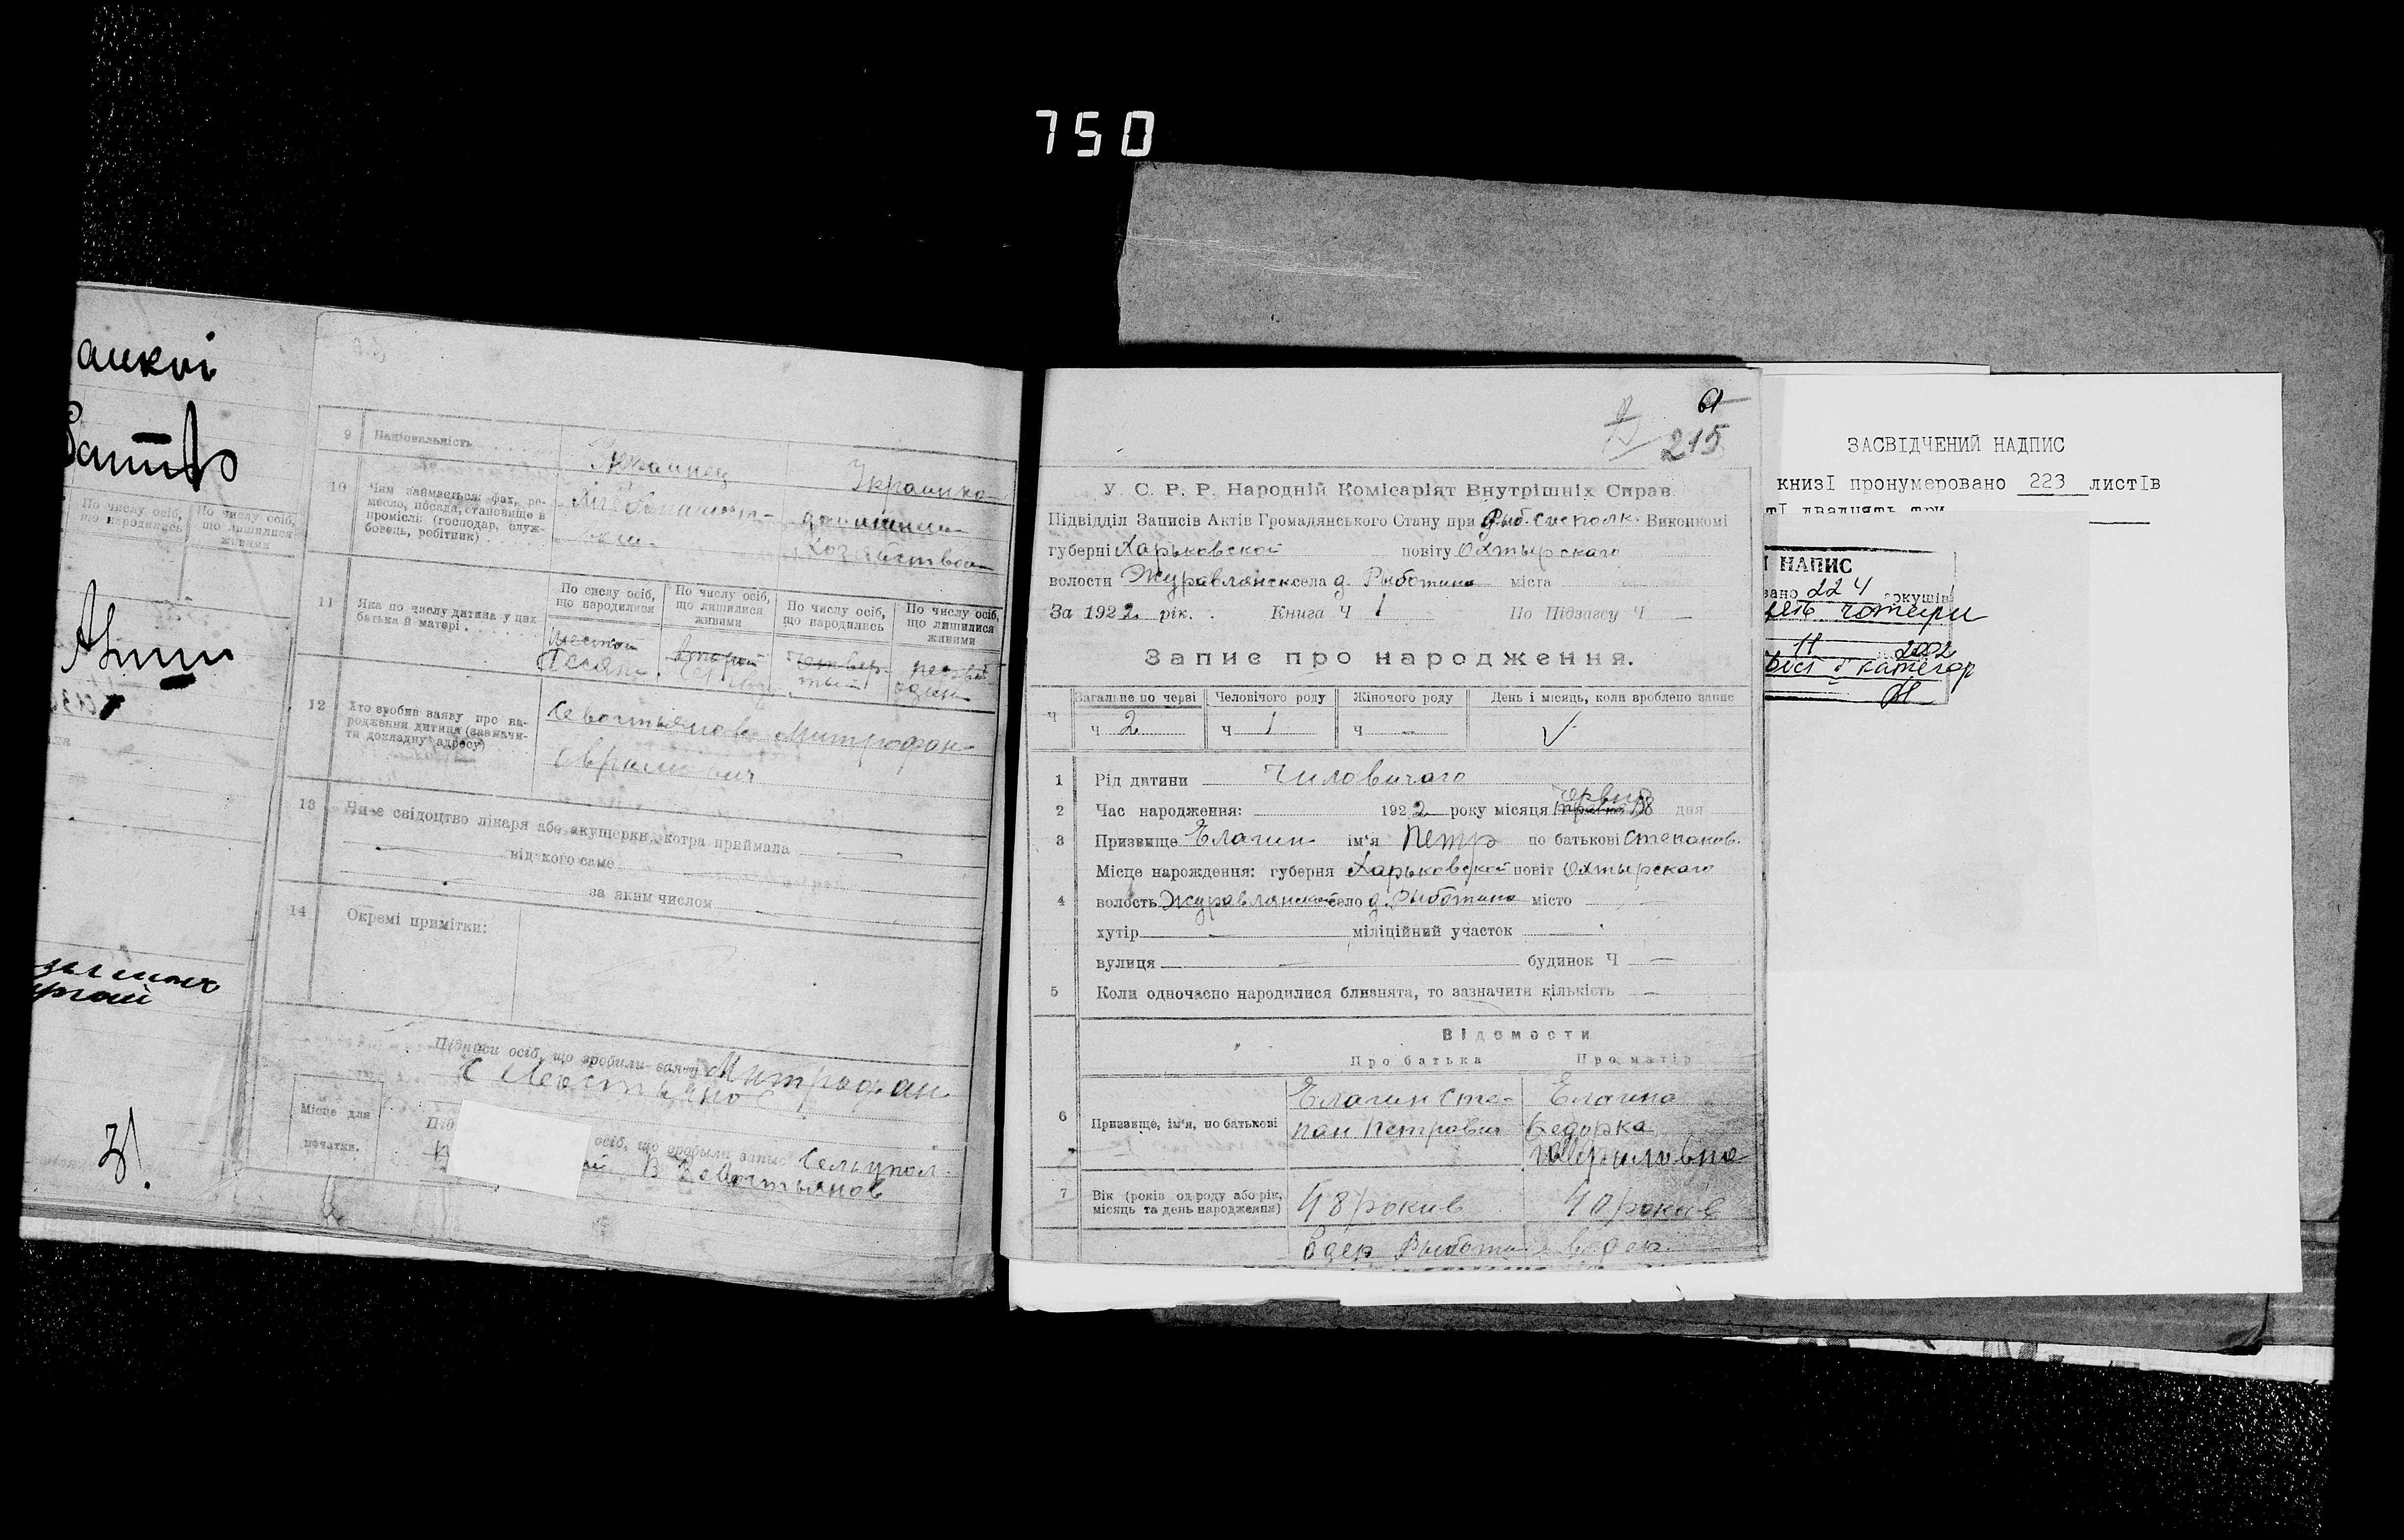 750
анкві
По числу осіб, що народилися
По числу осіб, що лишилися живими
9 Національність
Украинец
Украинка
10 Чим займається: фах, ре-
месло, посада, становище в
промислі: (господар, служ-
бовець, робітник)
Хлебопашест-
вом
домашним
хозяйством
11 Яка по числу дитина у цих
батька й матері
По числу осіб, що народилися
По числу осіб, що лишилися живими
По числу осіб, що народились
По числу осіб, що лишилися живими
шестой
второй
четвер-
тый
первый
один
12 Хто зробив заяву про на-
родження дитини (зазначи-
ти докладну адресу)
Севостьянов Митрофан
Аврамович
13 Чи є свідоцтво лікаря або акушерки, котра приймала
від кого саме
за яким числом
14 Окремі примітки:
Підписи осіб, що зробили заяву Митрофан
Севостьянов
Місце для
печатки.
осіб, що зробили запис Сельупол.
В Севостьянов
61
215
У. С. Р. Р. Народній Комісаріят Внутрішніх Справ.
Підвідділ Записів Актів Громадянського Стану при Рыб. Сисполк. Виконкомі
губерні Харьковской повіту Охтырскаго
волости Журавлянск села д. Рыботина міста
За 1922 рік. Книга Ч 1 По Підзагсу Ч
Запис про народження.
Ч
Загальне по черзі Человічого роду Жіночого роду День і місяць, коли зроблено запис
ч 2 ч 1 ч
1 Рід дитини Чиловичаго
червня
2 Час народження: 1922 року місяця травня 18 дня
3 Призвище Елагин ім'я Петр по батькові Степанов.
Місце народження: губерня Харьковской повіт Охтырскаго
4 волость Журавлянской село д. Рыботина місто
хутір міліційний участок
вулиця будинок Ч
5 Коли одночасно народилися близнята, то зазначити кількість
Відомости
Про батька Про матір
6 Призвище, ім'я, по батькові
Елагин Сте-
пан Петрович
Елагина
Федорка
Гавриловна
7 Вік (років од роду або рік,
місяць та день народження)
48 рокив
40 рокив
в дер Рыботи
в дер.
ЗАСВІДЧЕНИЙ НАДПИС
книзІ пронумеровано 223 листІв
двадцять три
НАПИС
вано 224 аркушів
чотири
11 2002
І категор